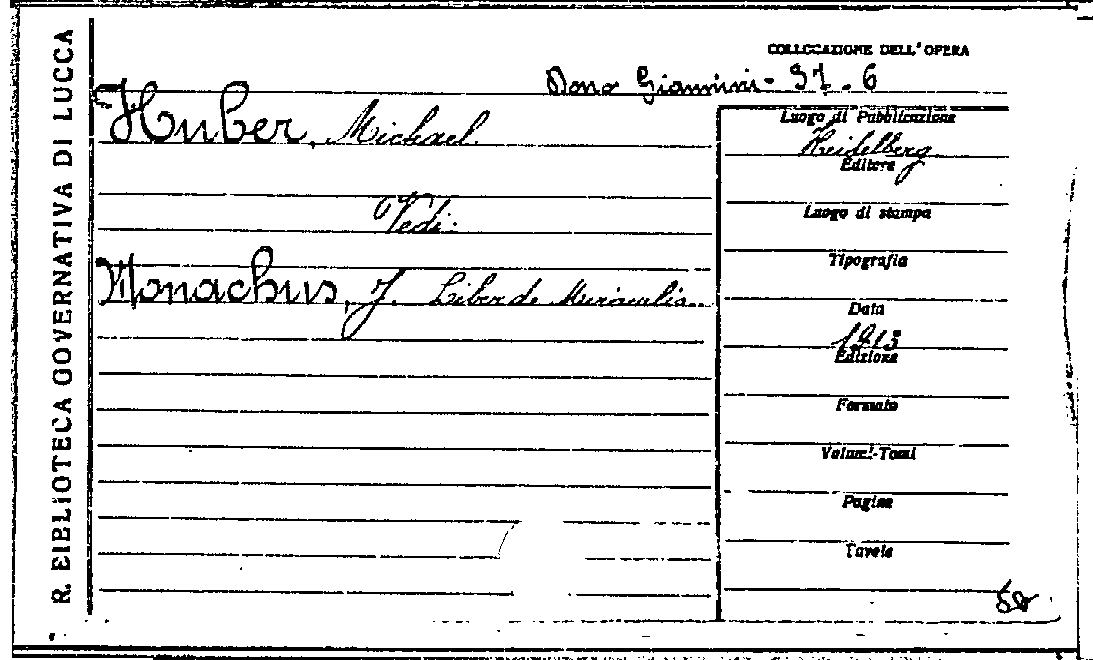 R. BIBLIOTECA GOVERNATIVA DI LUCCA
COLLOCAZIONE DELL'OPERA
Dono Giannini - 37 . 6
Huber, Michael.
Vedi:
Monachus, J. Liber de Miraculis.
Luogo di Pubblicazione
Heidelberg
Editore
Luogo di stampa
Tipografia
Data
1913
Edizione
Formato
Volumi-Tomi
Pagine
Tavole